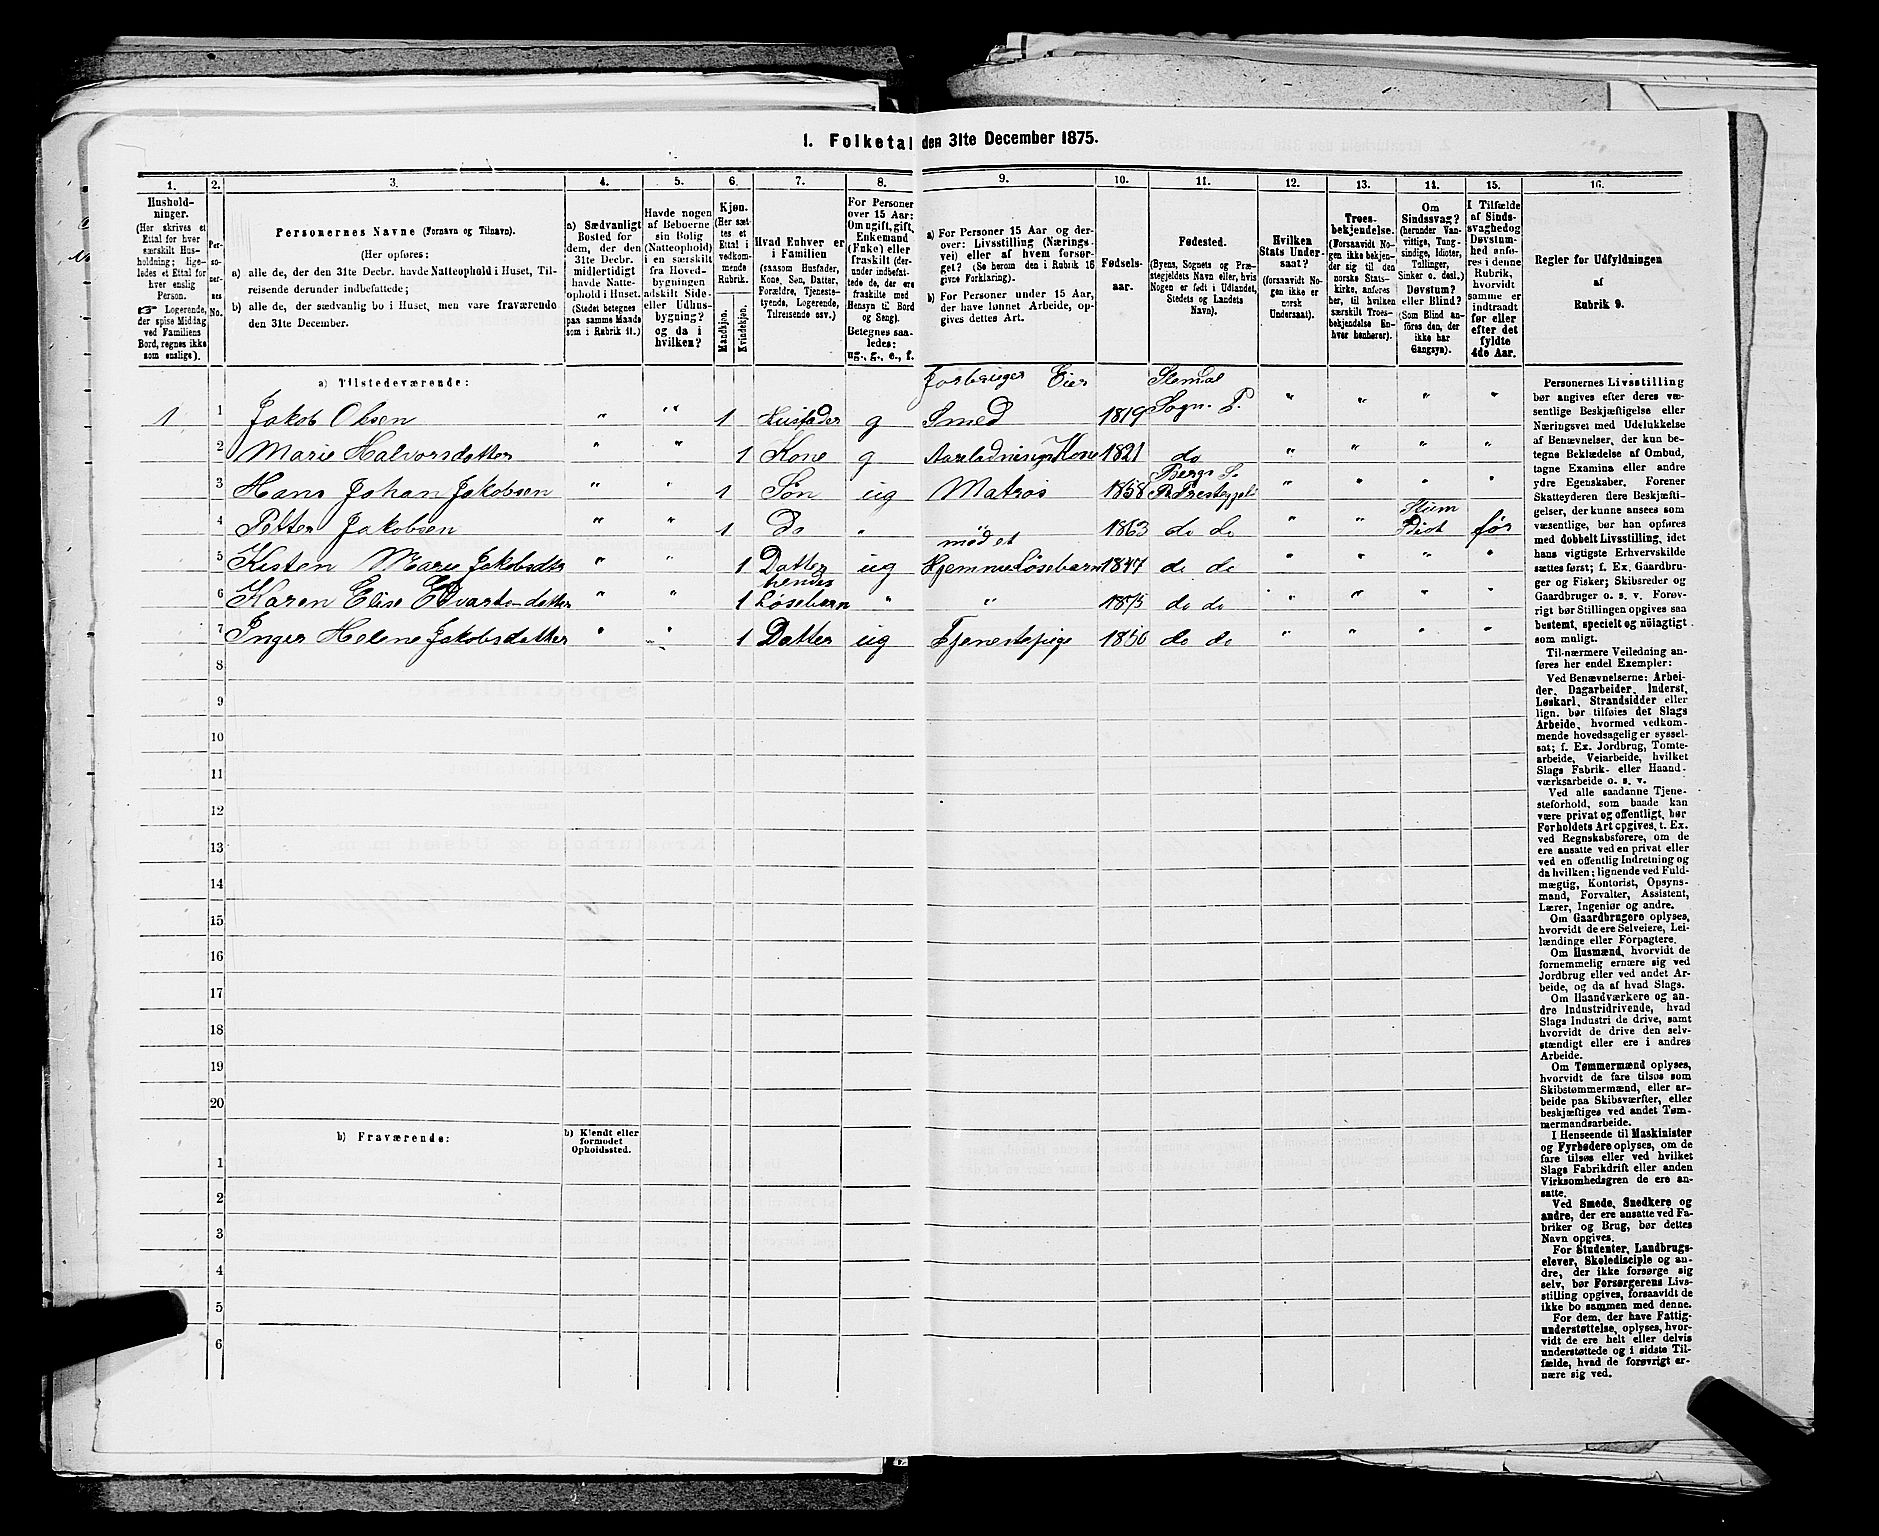 1. Folketal den 31te December 1875.
1. 2. 3. 4. 5. 6. 7. 8. 9. 10. 11. 12. 13. 14. 15. 16.
Hushold-
ninger.
(Her skrives et
Ettal for hver
særskilt Hus-
holdning; lige-
ledes et Ettal for
hver enslig
Person.
☞ Logerende,
der spise Middag
ved Familiens
Bord, regnes ikke
som enslige).
Per-
so-
ner-
nes
No.
Personernes Navne (Fornavn og Tilnavn).
(Her opføres:
a) alle de, der den 31te Decbr. havde Natteophold i Huset, Til-
reisende derunder indbefattede;
b) alle de, der sædvanlig bo i Huset, men vare fraværende
den 31te December.
a) Sædvanligt
Bosted for
dem, der den
31te Decbr.
midlertidigt
havde Natte-
ophold i Huset.
(Stedet betegnes
paa samme Maade
som i Rubrik 11.)
Havde nogen
af Beboerne
sin Bolig
(Natteophold)
i en særskilt
fra Hoved-
bygningen
adskilt Side-
eller Udhus-
bygning?
og da i
hvilken?
Kjøn.
(Her sæt-
tes et
Ettal i
vedkom-
mende
Rubrik.
Mandkjøn.
Kvindekjøn.
Hvad Enhver er
i Familien
(saasom Husfader,
Kone, Søn, Datter,
Forældre, Tjeneste-
tyende, Logerende,
Tilreisende osv.)
For Personer
over 15 Aar:
Om ugift, gift,
Enkemand
(Enke) eller
fraskilt (der-
under indbefat-
tede de, der ere
fraskilte med
Hensyn til Bord
og Seng).
Betegnes saa-
ledes:
ug., g., e., f.
a) For Personer 15 Aar og der-
over: Livsstilling (Nærings-
vei) eller af hvem forsør-
get? (Se herom den i Rubrik 16
givne Forklaring).
b) For Personer under 15 Aar,
der have lønnet Arbeide, op-
gives dettes Art.
Fødsels-
aar.
Fødested.
(Byens, Sognets og Præ-
stegjeldets Navn eller, hvis
Nogen er født i Udlandet,
Stedets og Landets
Navn).
Hvilken
Stats Under-
saat?
(forsaavidt No-
gen ikke er
norsk
Undersaat).
Troes-
bekjendelse.
(Forsaavidt No-
gen ikke bekjen-
der sig til den
norske Stats-
kirke, anføres
her, til hvilken
særskilt Troes-
bekjendelse En-
hver henhører).
Om
Sindssvag?
(herunder Van-
vittige, Tung-
sindige, Idioter,
Tullinger,
Sinker o. desl.)
Døvstum?
eller Blind?
(Som Blind an-
føres den, der
ikke har
Gangsyn).
I Tilfælde
af Sinds-
svaghed og
Døvstum-
hed anfø-
res i denne
Rubrik,
hvorvidt
samme er
indtraadt
før eller
efter det
fyldte
4de Aar.
Regler for Udfyldningen
af
Rubrik 9.
a) Tilstedeværende:
1 1 Jakob Olsen " " 1 Husfader g Jorbruger Eier Smed 1819 Sogn. P. " " " "
2 Marie Halvorsdatter " " 1 Kone g Kone 1821 do " " " "
3 Hans Johan Jakobsen " " 1 Søn ug Matros 1858 Bergs S. " " " "
4 Petter Jakobsen " " 1 Do " " 1863 do do " " Idiot før
5 Kisten Marie Jakobsdtr " " 1 Datter ug Hjemme med et Løsebarn 1847 do do " " " "
6 Karen Elise Edvartsdatter " " 1 hendes Løsebarn " " 1875 do do " " " "
7 Inger Helene Jakobsdatter " " 1 Datter ug Tjenestepige 1850 do do " " " "
8
9
10
11
12
13
14
15
16
17
18
19
20
b) Fraværende:
b) Kjendt eller
formodet
Opholdssted.
1
2
3
4
5
6
Personernes Livsstilling
bør angives efter deres væ-
sentlige Beskjæftigelse eller
Næringsvei med Udelukkelse
af Benævnelser, der kun be-
tegne Beklædelse af Ombud,
tagne Examina eller andre
ydre Egenskaber. Forener
Skatteyderen flere Beskjæfti-
gelser, der kunne ansees som
væsentlige, bør han opføres
med dobbelt Livsstilling, idet
hans vigtigste Erhvervskilde
sættes først; f. Ex. Gaardbru-
ger og Fisker; Skibsreder og
Gaardbruger o. s. v. Forøv-
rigt bør Stillingen opgives saa
bestemt, specielt og nöiagtigt
som muligt.
Til nærmere Veiledning an-
føres her endel Exempler:
Ved Benævnelserne: Arbei-
der, Dagarbeider, Inderst,
Løskarl, Strandsidder eller
lign. bør tilføies det Slags
Arbeide, hvormed vedkom-
mende hovedsagelig er syssel-
sat; f. Ex. Jordbrug, Tomte-
arbeide, Veiarbeide, hvilket
Slags Fabrik- eller Haand-
værksarbeide o. s. v.
Ved alle saadanne Tjene-
steforhold, som baade kan
være privat og offentligt, bør
Forholdets Art opgives, t. Ex.
ved Regnskabsførere, om de
ere ansatte ved en privat eller
ved en offentlig Indretning og
da hvilken; lignende ved Fuld-
mægtig, Kontorist, Opsyns-
mand, Forvalter, Assistent,
Lærer, Ingeniør og andre.
Om Gaardbrugere oplyses,
hvorvidt de ere Selveiere, Lei-
lændinge eller Forpagtere.
Om Husmænd, hvorvidt de
fornemmelig ernære sig ved
Jordbrug eller ved andet Ar-
beide, og da af hvad Slags.
Om Haandværkere og an-
dre Industridrivende, hvad
Slags Industri de drive, samt
hvorvidt de drive den selv-
stændigt eller ere i andres
Arbeide.
Om Tømmermænd oplyses,
hvorvidt de fare tilsøs som
Skibstømmermænd, eller ar-
beide paa Skibsværfter, eller
beskjæftiges ved andet Tøm-
mermandsarbeide.
I Henseende til Maskinister
og Fyrbødere oplyses, om de
fare tilsøs eller ved hvilket
Slags Fabrikdrift eller anden
Virksomhedsgren de ere an-
satte.
Ved Smede, Snedkere og
andre, der ere ansatte ved Fa-
briker og Brug, bør dettes
Navn opgives.
For Studenter, Landbrugs-
elever, Skoledisciple og an-
dre, der ikke forsørge sig
selv, bør Forsørgerens Livs-
stilling opgives, forsaavidt de
ikke bo sammen med denne.
For dem, der have Fattig-
understøttelse, oplyses, hvor-
vidt de ere helt eller delvis
understøttede og i sidste Til-
fælde, hvad de forøvrigt er-
nære sig ved.